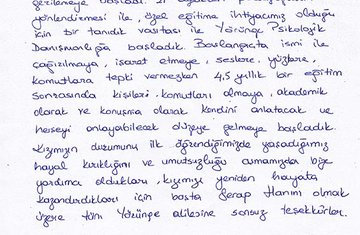 gerilemeye başladı.
yönlendirmesi ile, özel eğitime ihtiyacımız olduğu
için bir tanıdık vasıtası ile Yörünge Psikolojik
Danışmanlığa başladık. Başlangıçta ismi ile
çağrılmaya, işaret etmeye, seslere, yüzlere,
komutlara tepki vermezken 4,5 yıllık bir eğitim
sonrasında kişileri, komutları almaya, akademik
olarak ve konuşma olarak kendini anlatacak ve
herşeyi anlayabilecek düzeye gelmeye başladık.
Kızımızın durumunu ilk öğrendiğimizde yaşadığımız
hayal kırıklığını ve umutsuzluğu aşmamızda bize
yardımcı oldukları, kızımızı yeniden hayata
kazandırdıkları için başta Serap Hanım olmak
üzere tüm Yörünge ailesine sonsuz teşekkürler.